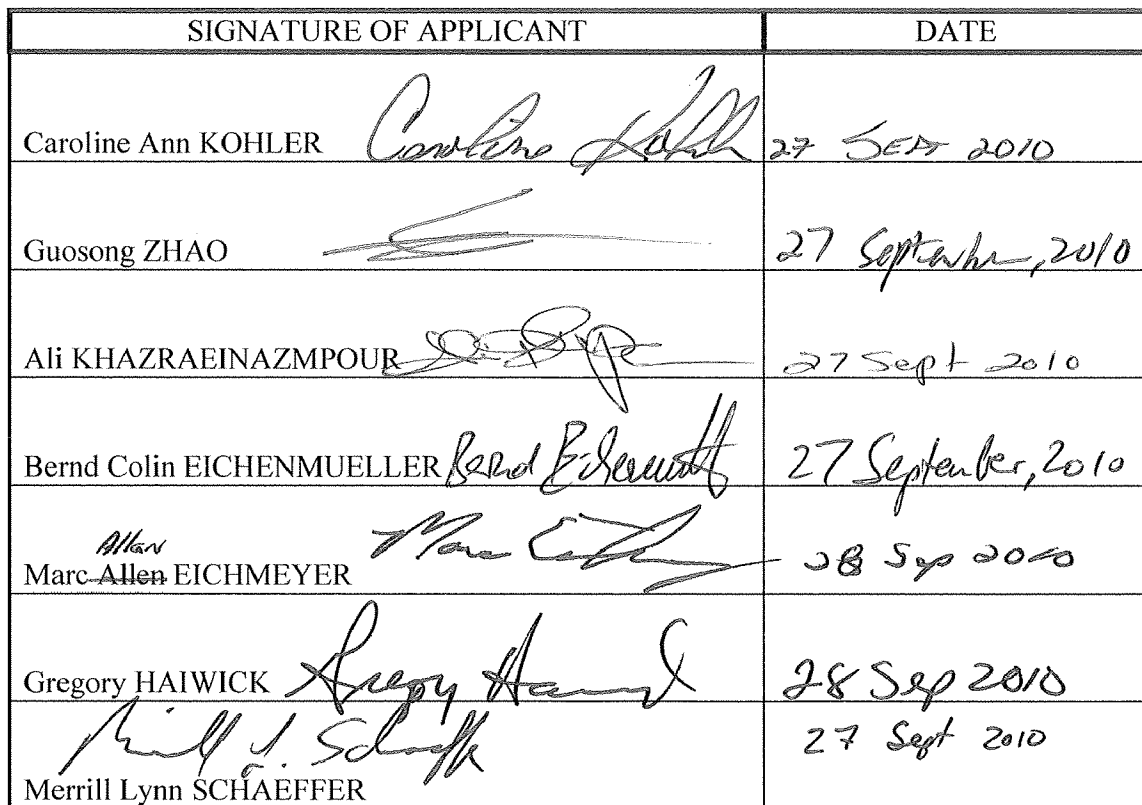 SIGNATURE OF APPLICANT DATE
Caroline Ann KOHLER Caroline Kohler 27 SEPT 2010
Guosong ZHAO 27 September, 2010
Ali KHAZRAEINAZMPOUR 27 Sept 2010
Bernd Colin EICHENMUELLER Bernd 27 September, 2010
Allan
Marc Allen EICHMEYER Marc 28 Sep 2010
Gregory HAIWICK Gregory 28 Sep 2010
27 Sept 2010
Merrill Lynn SCHAEFFER